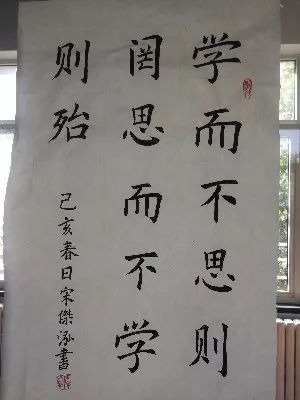 学而不思则
罔思而不学
则殆
己亥春日宋傑泓書